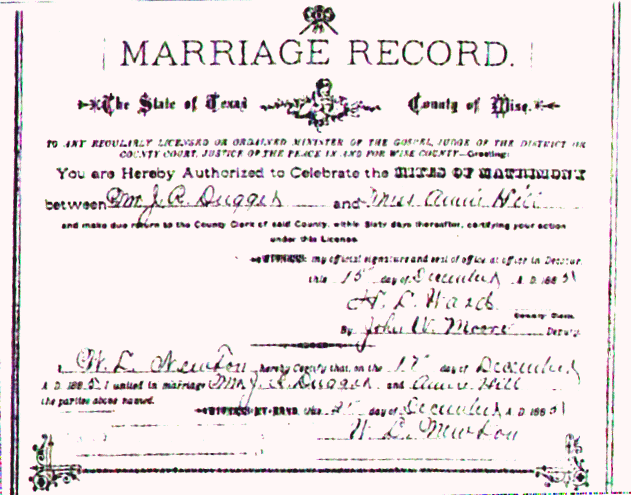 MARRIAGE RECORD.
The State of Texas County of Wise.
TO ANY REGULARLY LICENSED OR ORDAINED MINISTER OF THE GOSPEL, JUDGE OF THE DISTRICT OR
COUNTY COURT, JUSTICE OF THE PEACE IN AND FOR WISE COUNTY—Greeting:
You are Hereby Authorized to Celebrate the RITES OF MATRIMONY
between Mr J. R. Dugger and Miss Annie Hill
and make due return to the County Clerk of said County, within Sixty days thereafter, certifying your action
under this License.
WITNESS my official signature and seal of office at office in Decatur
this 15 day of December A. D. 188
H. L. Ward
County Clerk.
By John W. Moore Deputy.
I W. L. Newton hereby Certify that, on the day of December
A. D. 188 I united in marriage Mr J. R. Dugger and Annie Hill
the parties above named.
WITNESS MY HAND this day of December A. D. 188
W. L. Newton